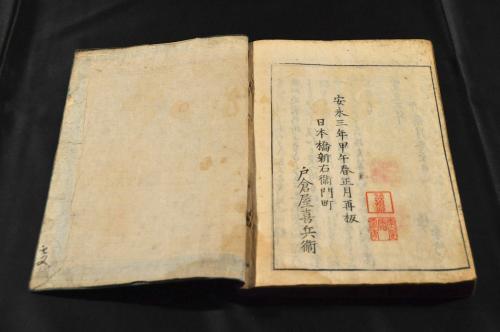 安永三年甲午春正月再板
日本橋新右衛門町
戸倉屋喜兵衛